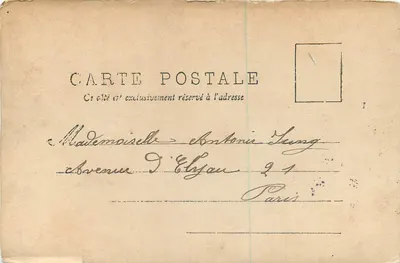 CARTE POSTALE
Ce côté est exclusivement réservé à l'adresse
Mademoiselle Antonie Jung
Avenue d'Eylau 21
Paris